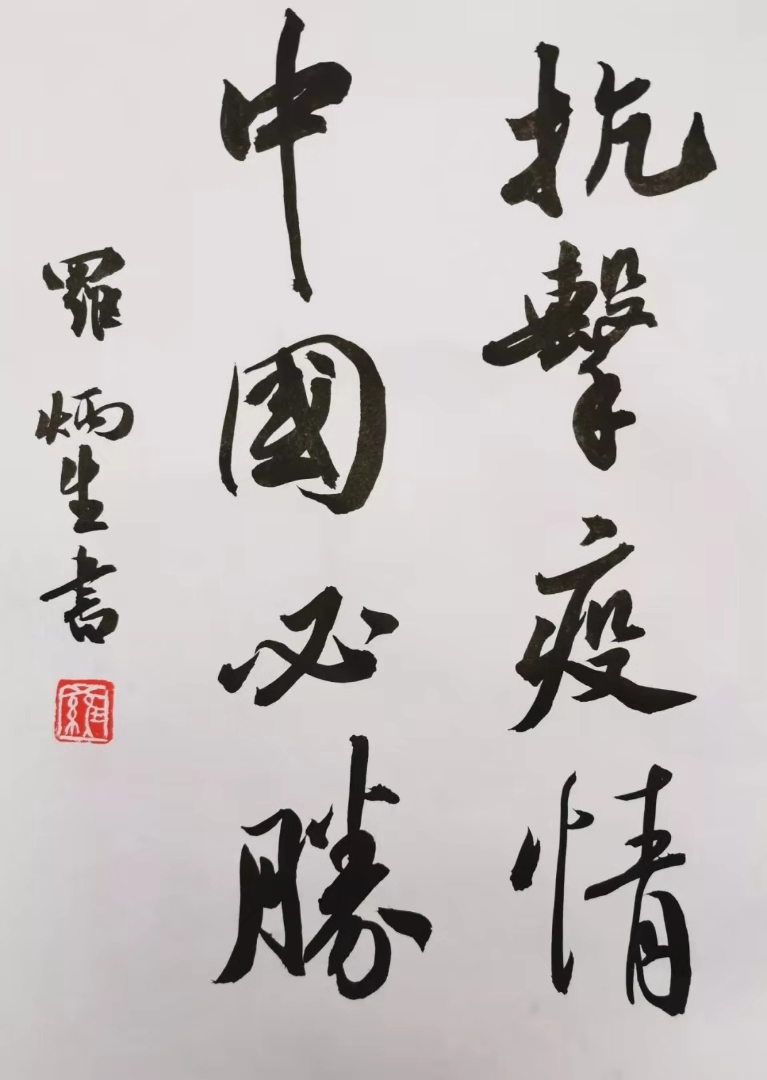 抗擊疫情
中國必勝
羅炳生書